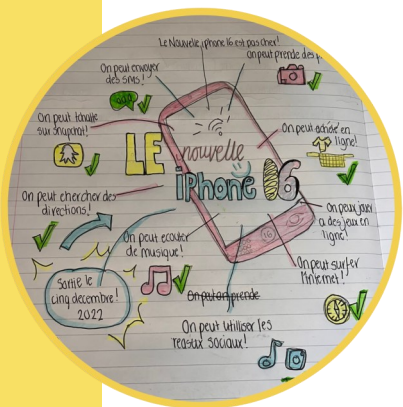 Le Nouvelle iphone 16 est pas cher!
On peut envoyer
des SMS!
on peut prende des p
On peut tchatte
sur snapchat!
On peut acheté en
ligne!
LE nouvelle
iPhone 16
On peut chercher des
directions!
On peux jouer
a des jeux en
ligne!
On peut ecouter
de musique!
On peut surfer
l'internet!
Sortie le
cinq decembre!
2022
On peut on prende
On peut utiliser les
reseaux sociaux!